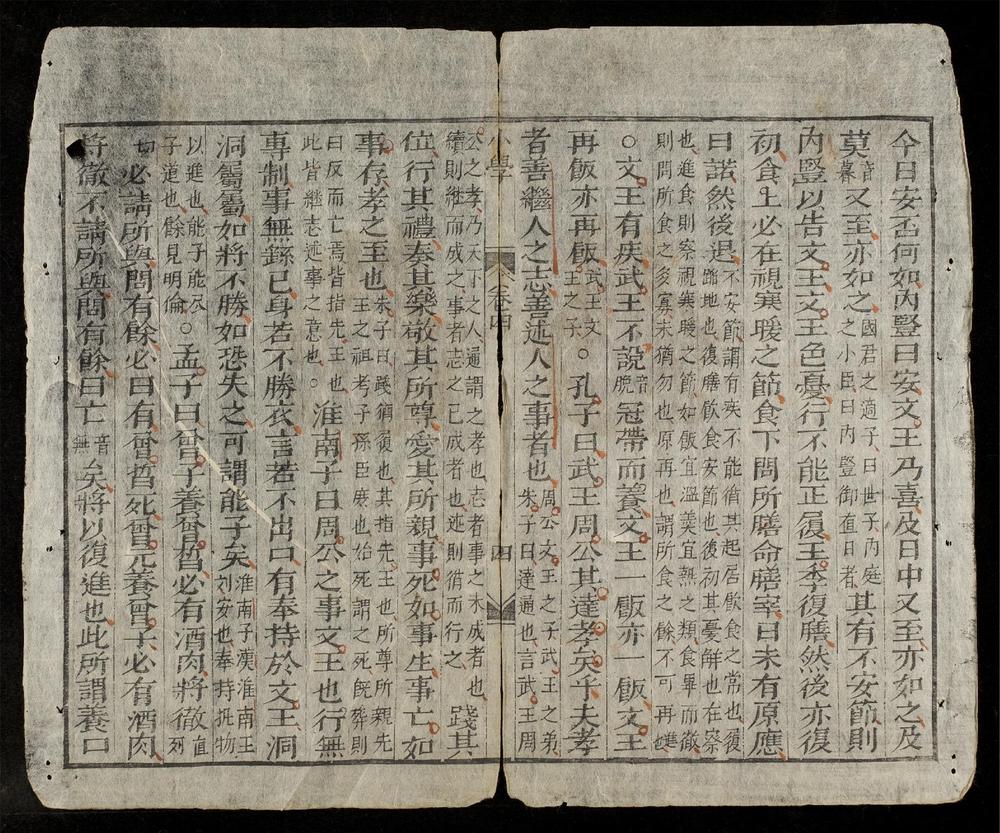 今日安否何如內豎曰安文王乃喜及日中又至亦如之及
莫音暮又至亦如之國君之適子曰世子內庭之小臣曰內豎御直日者其有不安節則
內豎以告文王文王色憂行不能正履王季復膳然後亦復
初食上必在視寒暖之節食下問所膳命膳宰曰未有原應
曰諾然後退不安節謂有疾不能循其起居飲食之常也履蹈地也復膳飲食安節也復初其憂解也在察
也進食則察視寒暖之節如飯宜溫羹宜熱之類食畢而徹則問所食之多寡末猶勿也原再也謂所食之餘不可再進
○文王有疾武王不說音脫冠帶而養文王一飯亦一飯文王
再飯亦再飯武王文王之子○孔子曰武王周公其達孝矣乎夫孝
者善繼人之志善述人之事者也周公文王之子武王之弟朱子曰達通也言武王周
小學 卷四 四
公之孝乃天下之人通謂之孝也志者事之未成者也續則繼而成之事者志之已成者也述則循而行之踐其
位行其禮奏其樂敬其所尊愛其所親事死如事生事亡如
事存孝之至也朱子曰踐猶履也其指先王也所尊所親先王之祖考子孫臣庶也始死謂之死旣葬則
曰反而亡焉皆指先王也此皆繼志述事之意也○淮南子曰周公之事文王也行無
專制事無繇已身若不勝衣言若不出口有奉持於文王洞
洞屬屬如將不勝如恐失之可謂能子矣淮南子漢淮南王刘安也奉持執物
以進也能子能尽子道也餘見明倫○孟子曰曾子養曾晳必有酒肉將徹直列
切必請所與問有餘必曰有曾晳死曾元養曾子必有酒肉
將徹不請所與問有餘曰亡音無矣將以復進也此所謂養口